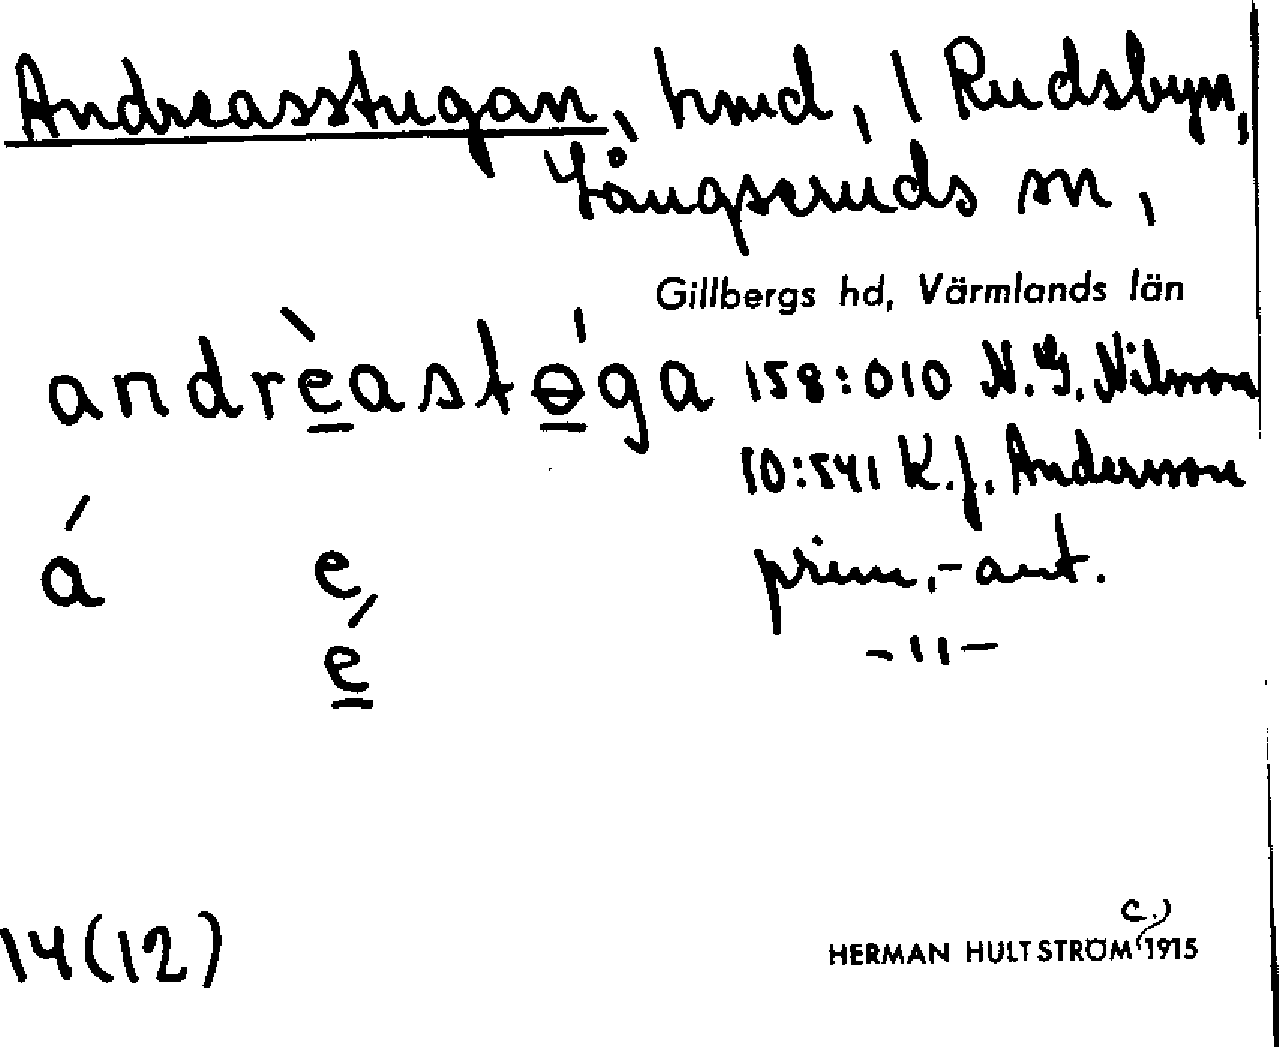 Andreasstugan, hmd, i Rudsbyn,
Långseruds sn,
Gillbergs hd, Värmlands län
andrèastɵ́ga 158:010 N. G. Nilsson
10:541 K. J. Andersson
á e prim.-ant.
é -"-
14(12)
c.)
HERMAN HULTSTRÖM (1915